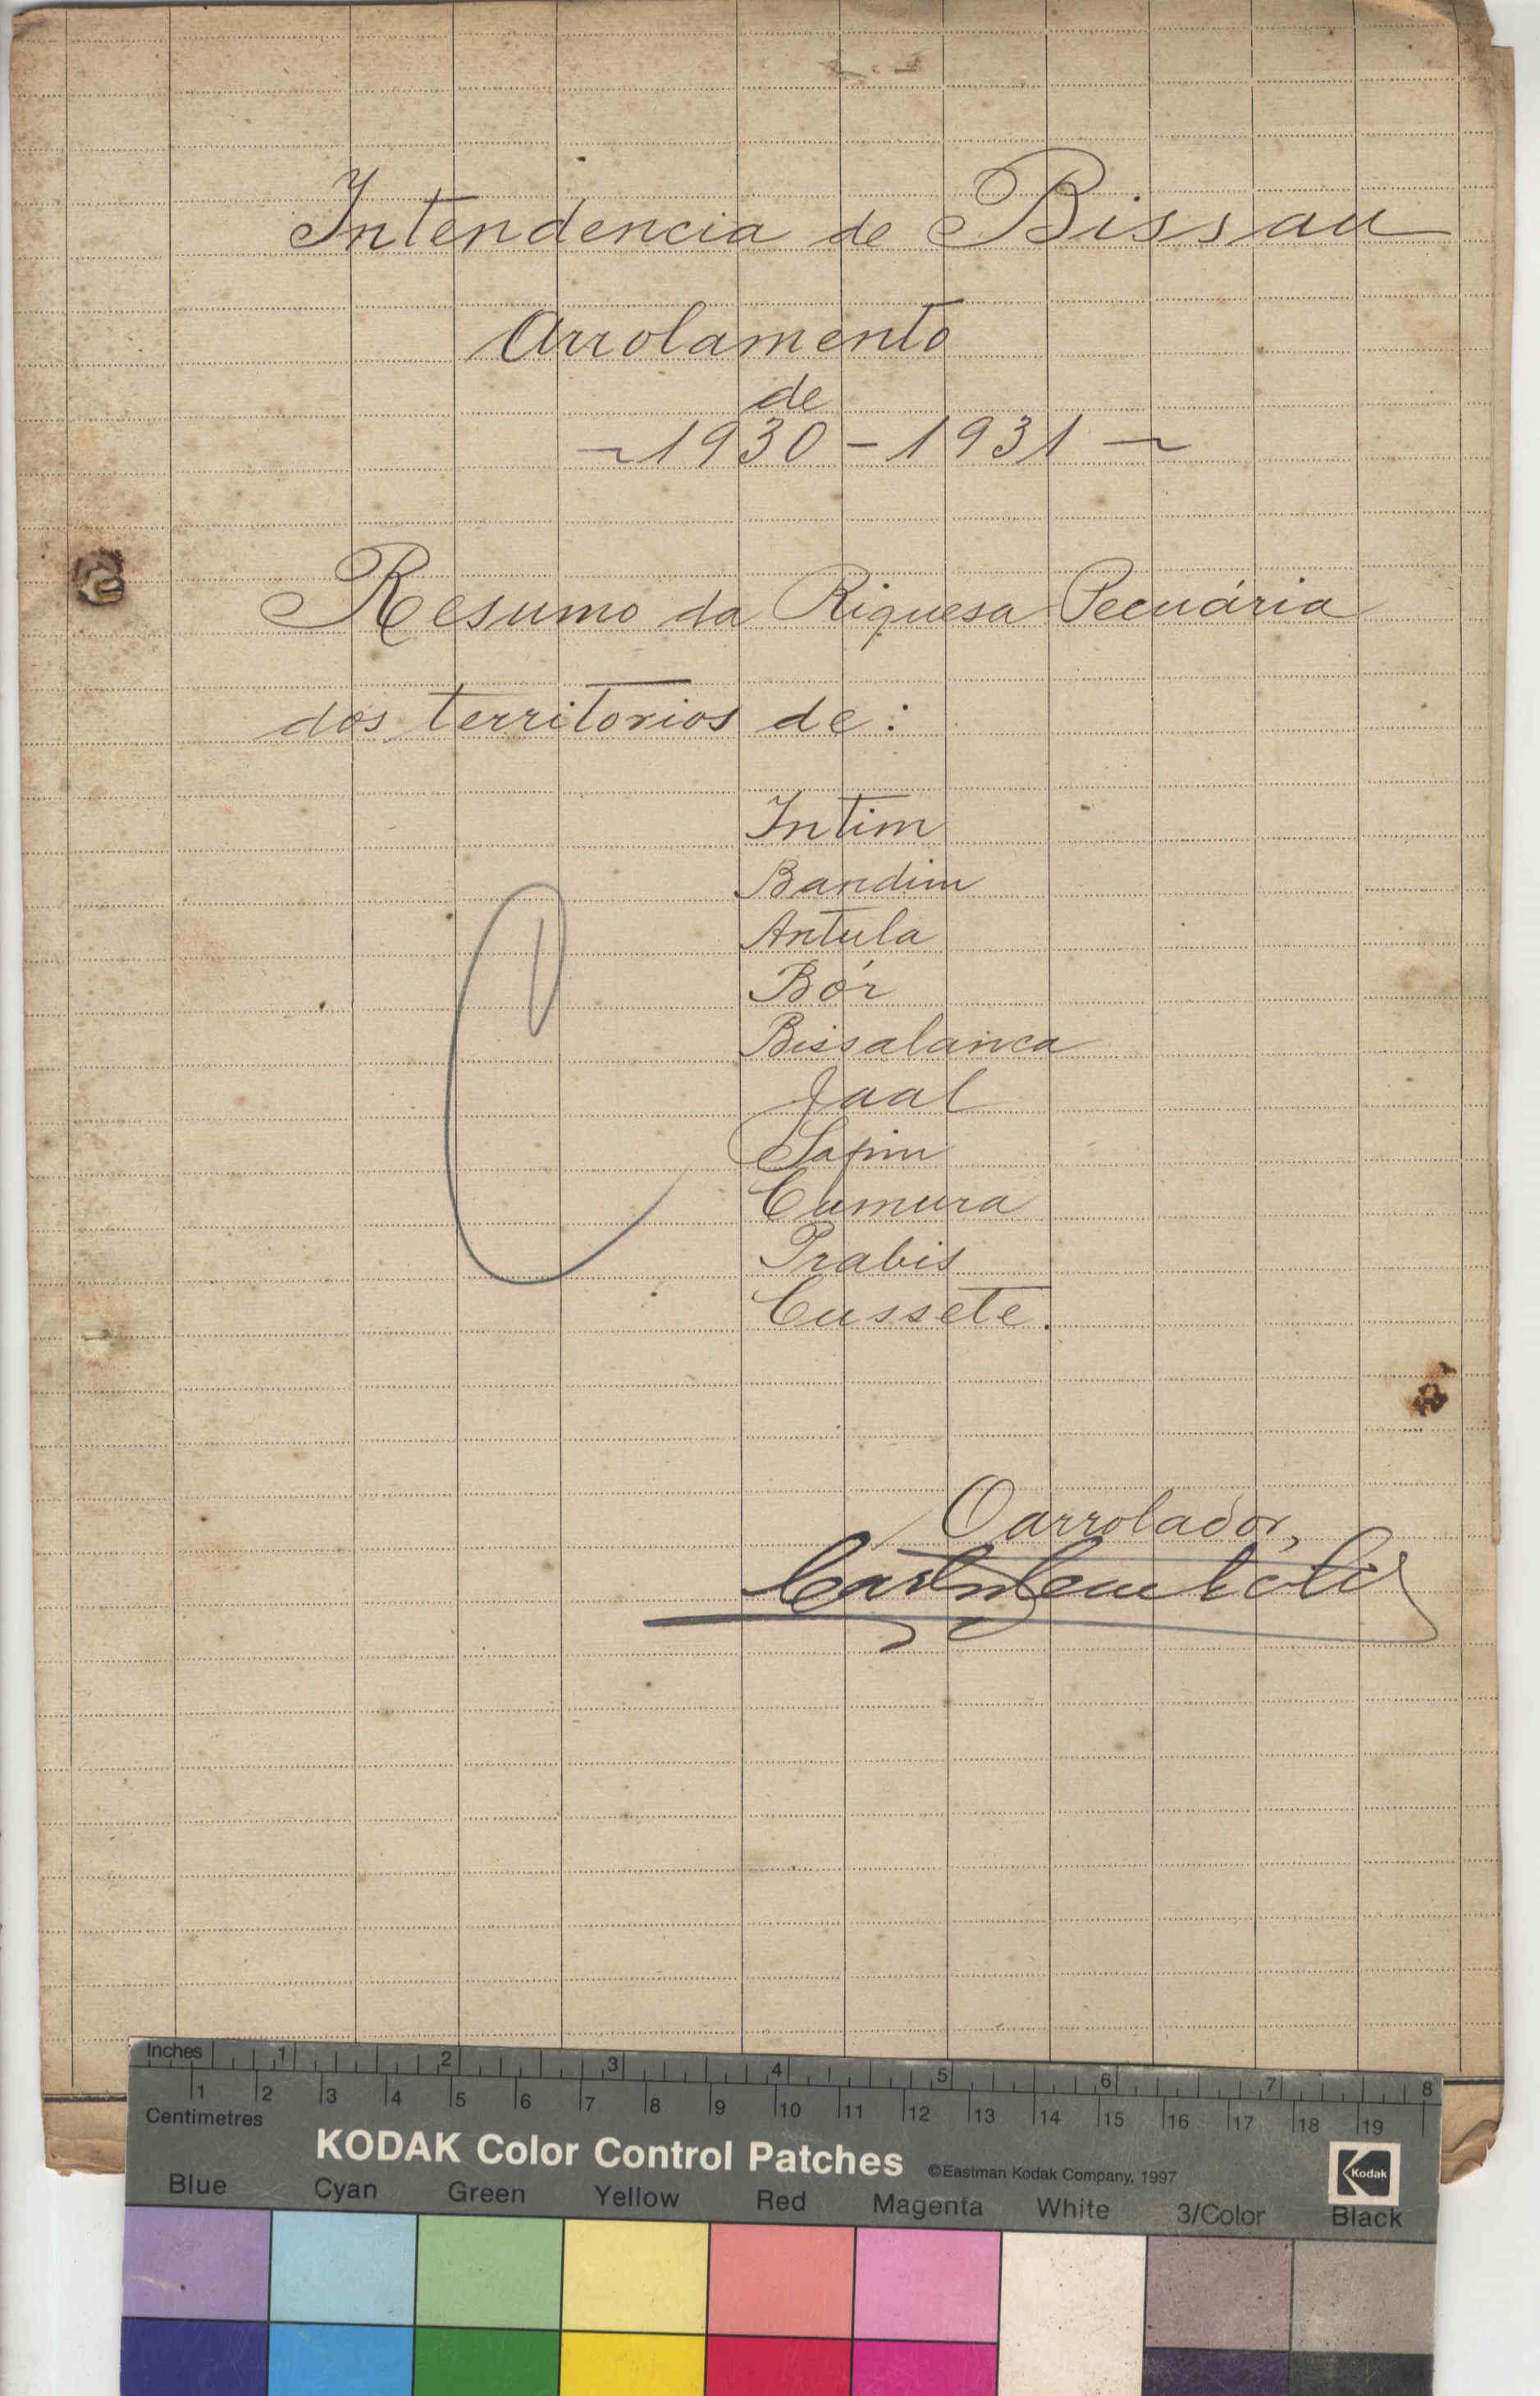 Intendencia de Bissau
Arrolamento
de
~ 1930 - 1931 ~
Resumo da Riquesa Pecuária
dos territorios de:
Intim
Bandim
Antula
Bór
Bissalanca
Jaal
Safim
Cumura
Prabis
Cussete.
O arrolador,
Inches 1 2 3 4 5 6 7 8
1 2 3 4 5 6 7 8 9 10 11 12 13 14 15 16 17 18 19
Centimetres
KODAK Color Control Patches ©Eastman Kodak Company, 1997 Kodak
Blue Cyan Green Yellow Red Magenta White 3/Color Black